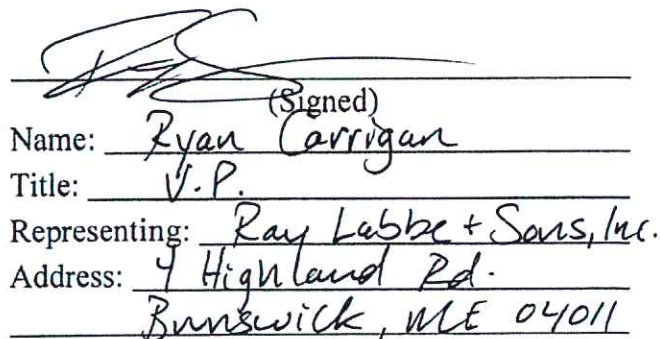 (Signed)
Name: Ryan Carrigan
Title: V.P.
Representing: Ray Labbe + Sons, Inc.
Address: 4 Highland Rd.
Brunswick, ME 04011